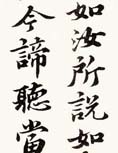 如汝所說如
今諦聽當